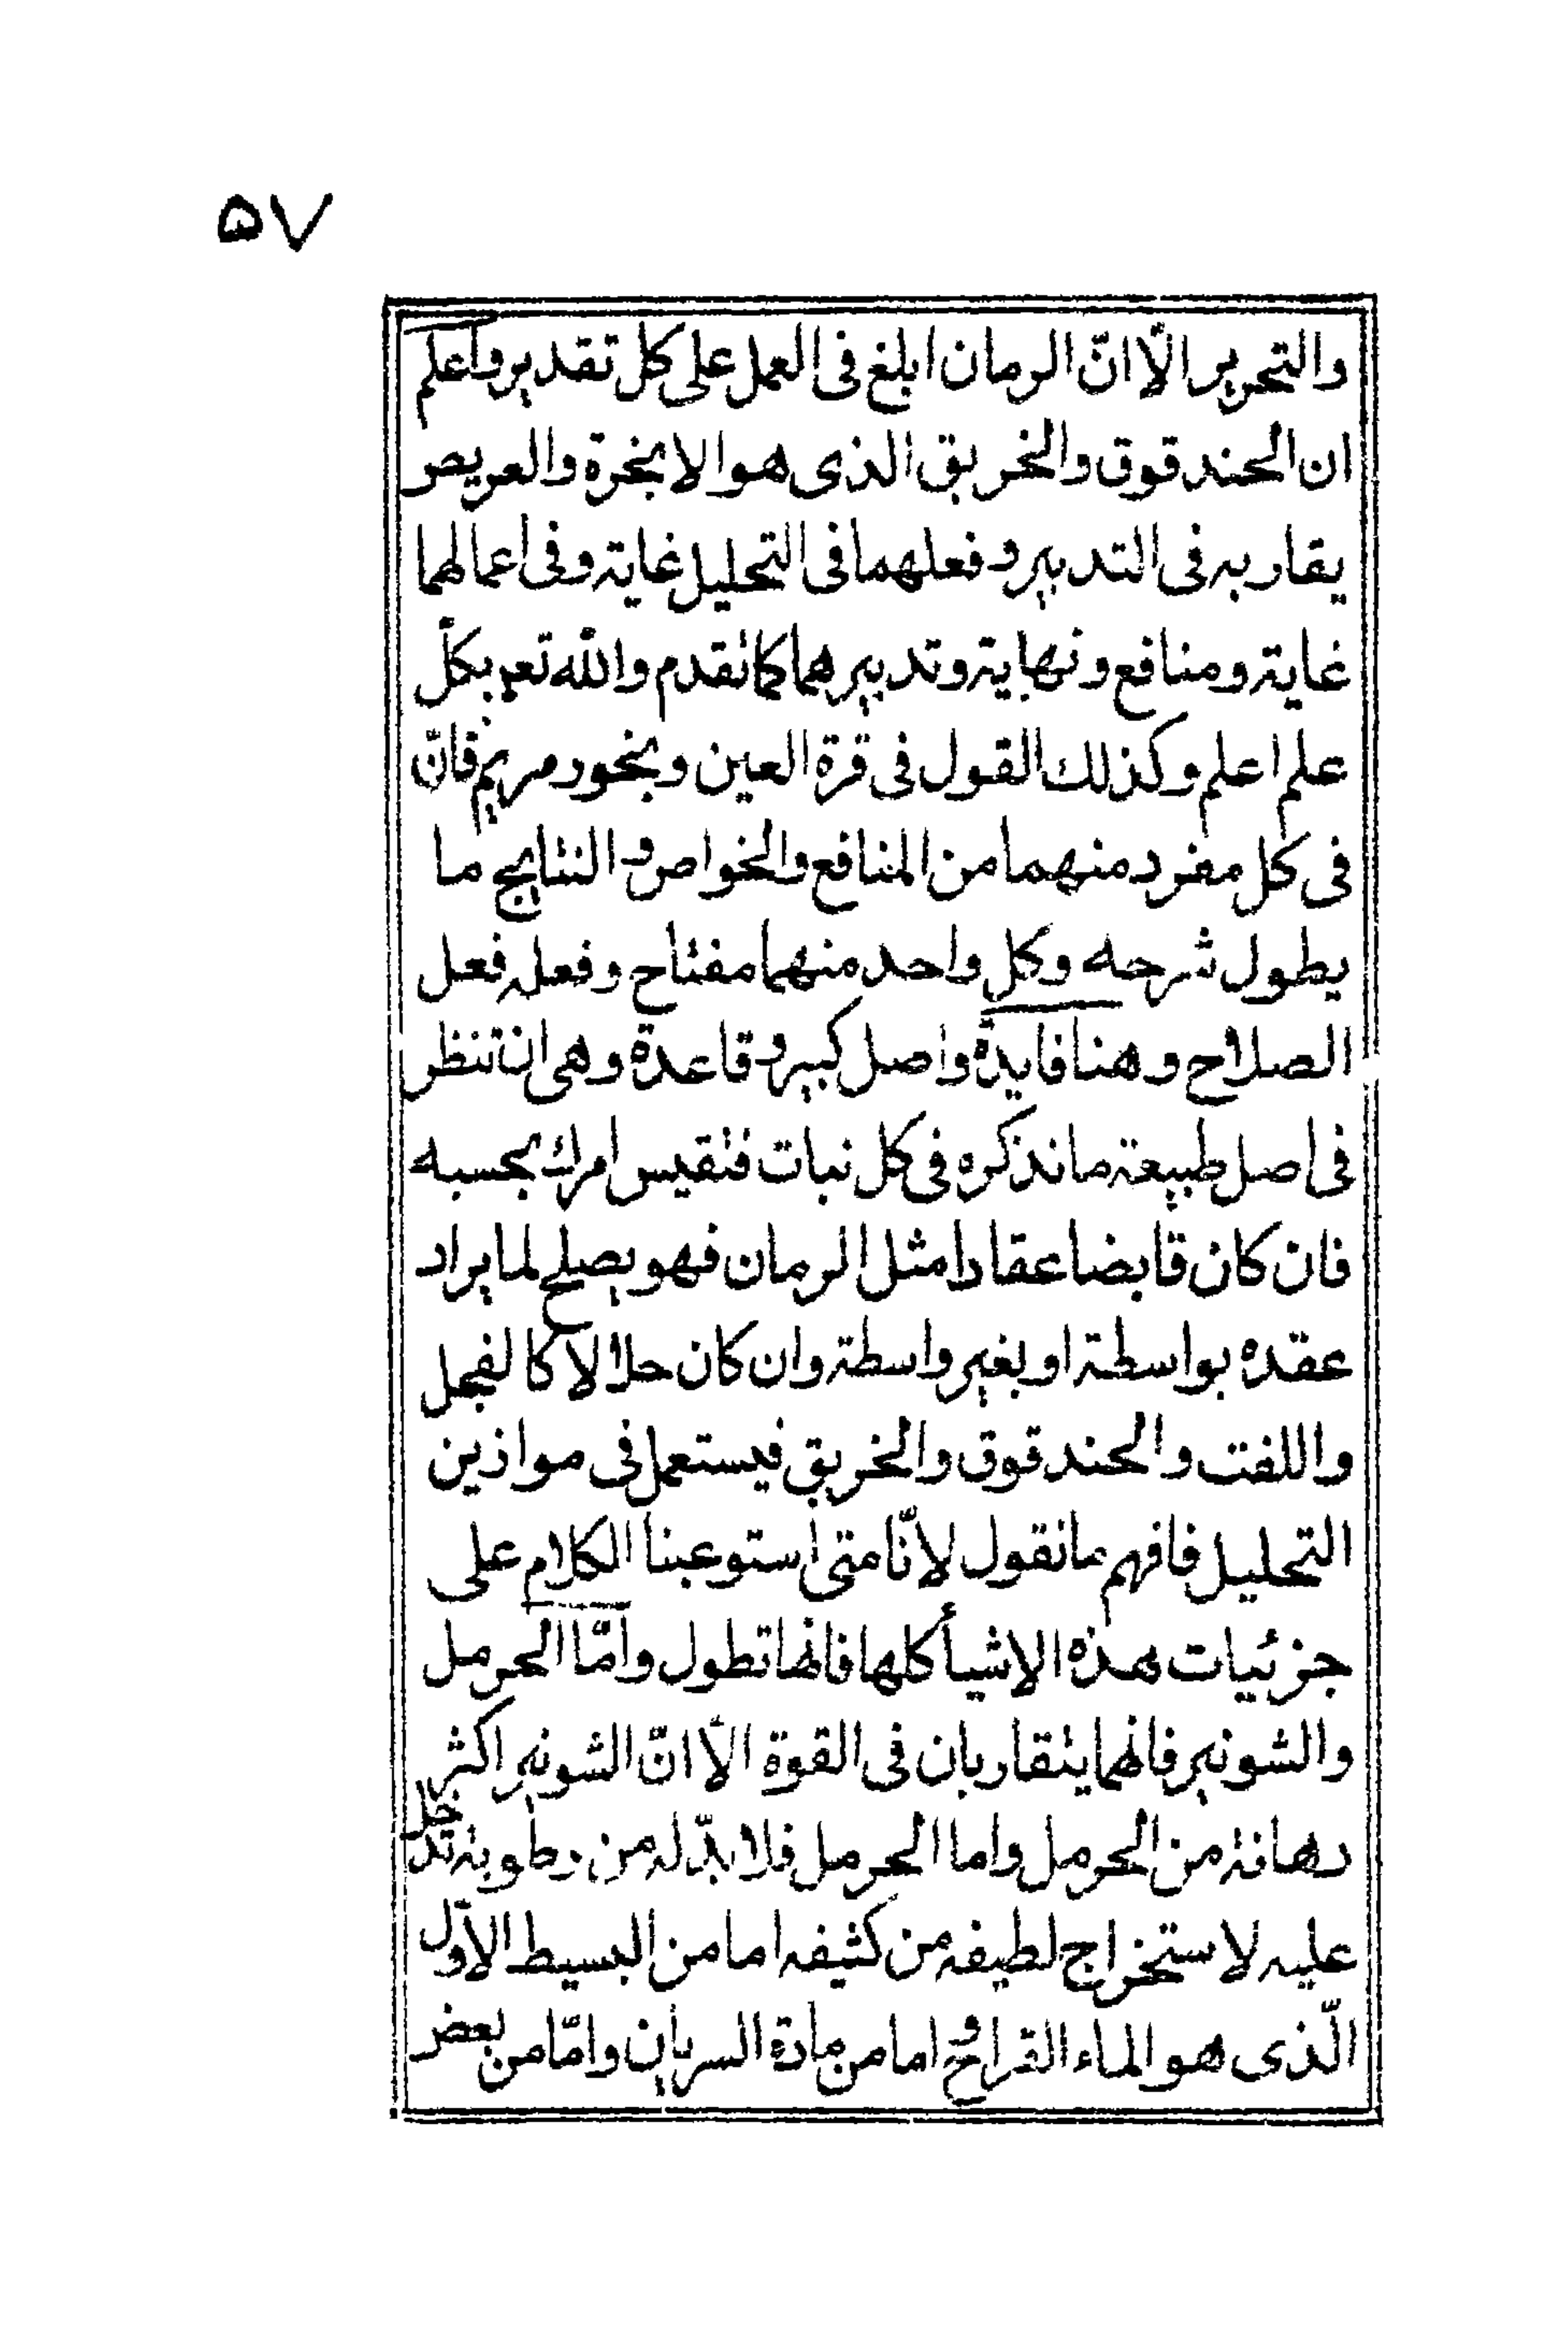 ۵۷
والتحرير الّا انّ الرمان ابلغ فى العمل على كل تقدير واعلم
ان الحندقوق والخربق الذى هو الانجرة والعريص
يقاربه فى التدبير وفعلهما فى التحليل غاية وفى اعمالهما
غاية ومنافع ونهاية وتدبيرهما كما تقدم والله تع بكل
علم اعلم وكذلك القول فى قرة العين وبخور مريم فانّ
فى كل مفرد منهما من المنافع والخواص والنتايج ما
يطول شرحه وكل واحد منهما مفتاح وفعله فعل
الصلاح وهنا فايدة واصل كبير وقاعدة وهى ان تنظر
فى اصل طبيعة ما نذكره فى كل نبات فتقيس امرك بحسبه
فان كان قابضا عقادا مثل الرمان فهو يصلح لما يراد
عقده بواسطة او بغير واسطة وان كان حلالا كالفجل
واللفت والحندقوق والخربق فيستعمل فى موازين
التحليل فافهم ما نقول لانّا متى استوعبنا الكلام على
جزئيات هذه الاشيأ كلها فانها تطول وامّا الحرمل
والشونيز فانهما يتقاربان فى القوة الّا انّ الشونيز اكثر
دهانة من الحرمل واما الحرمل فلا بدّ له من رطوبة تدخل
عليه لاستخراج لطيفه من كثيفه اما من البسيط الاوّل
الّذى هو الماء القراح واما من مادة السريان وامّا من بعض